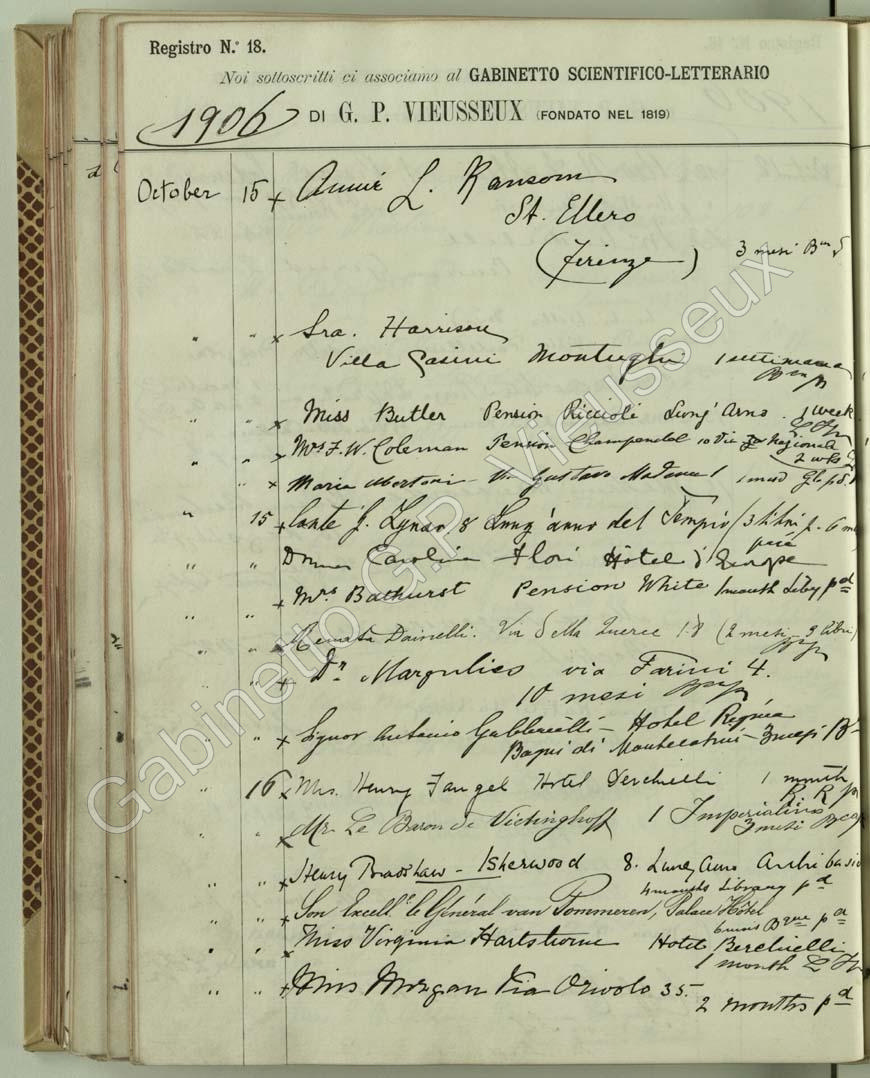 Registro N.º 18.
Noi sottoscritti ci associamo al GABINETTO SCIENTIFICO-LETTERARIO
1906 DI G. P. VIEUSSEUX (FONDATO NEL 1819)
October 15 x Annie L. Ransom
St. Ellero
(Firenze) 3 mesi
" " x Sra. Harrison
Villa Casini Montughi 1 settimana
" " x Miss Butler Pension Riccioli Lung' Arno. 1 week
" " x Mrs F. W. Coleman Pension Champendal 10 Via Nazionale
2 wks
" " x Maria Gustavo Modena 1 1 mese
" 15 x Conte J. Lynar 8 Lung'arno del Tempio (3 libri
" " Carolina Flori Hôtel d'Europe
" " x Mrs Bathurst Pension White 1 month Liby pd
" " x Renata Dainelli. Via della Querce 18 (2 mesi 3 libri)
" " x Dr Margulies via Farini 4.
10 mesi
" " x Signor Antonio Hotel Regina
Bagni di Montecatini - 3 mesi
" 16 x Mrs. Henry Fangel Hotel Berchielli 1 month
" " x Mr. Le Baron de Vietinghoff 1 Imperialino
3 mesi
" " x Henry Bradshaw-Isherwood 8. Lung Arno
4 months Library pd
" " x Son Excell. le Général van Pommeren, Palace Hôtel
pd
" " x Miss Virginia Hartshorne Hotel Berchielli
1 month
" " x Miss Morgan Via Oriolo 35.
2 months pd
Gabinetto G.P. Vieusseux